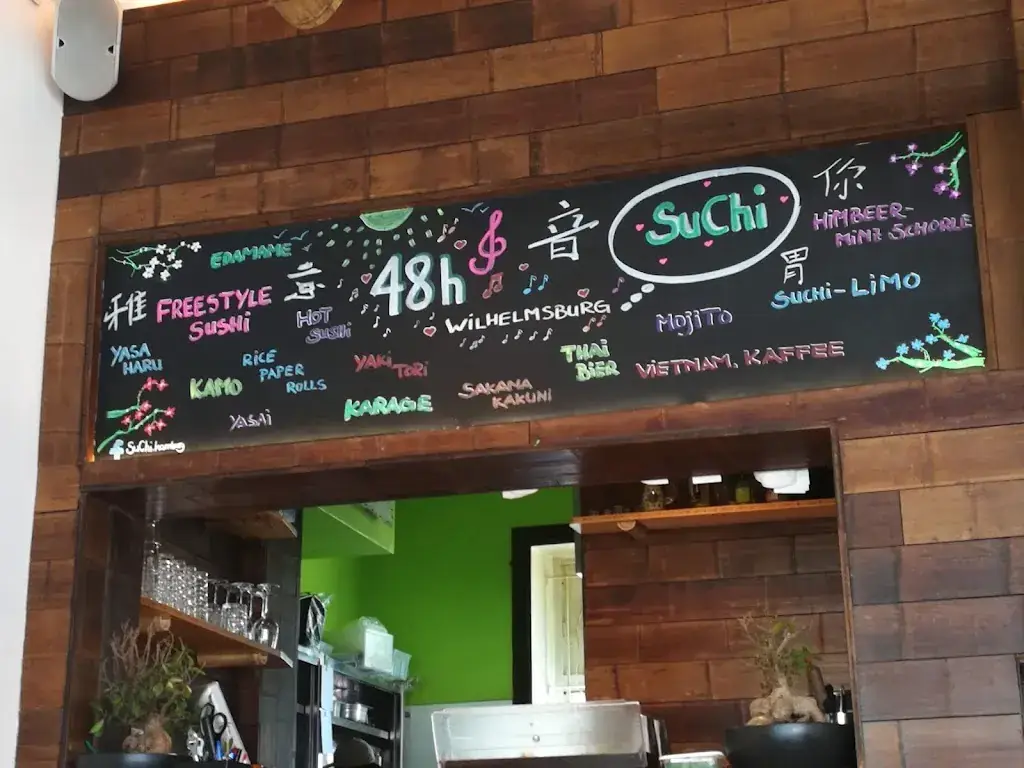 EDAMAME
雅
FREESTYLE
SUSHI
HOT
SUSHI
48h
WILHELMSBURG
音
SuChi
你
HIMBEER-
MINZ SCHORLE
胃
SUCHI-LIMO
MOJITO
YASA
HARU
KAMO
RICE
PAPER
ROLLS
YASAI
YAKI
TORI
KARAGE
SAKANA
KAKUNI
THAI
BIER
VIETNAM. KAFFEE
SuChi.hamburg